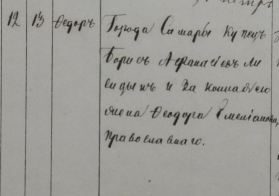 12 13 Ѳедоръ Города Самары Купецъ
Борисъ Аѳанасьевъ Ли
и законная его
жена Ѳеодора Емельянова,
православнаго.